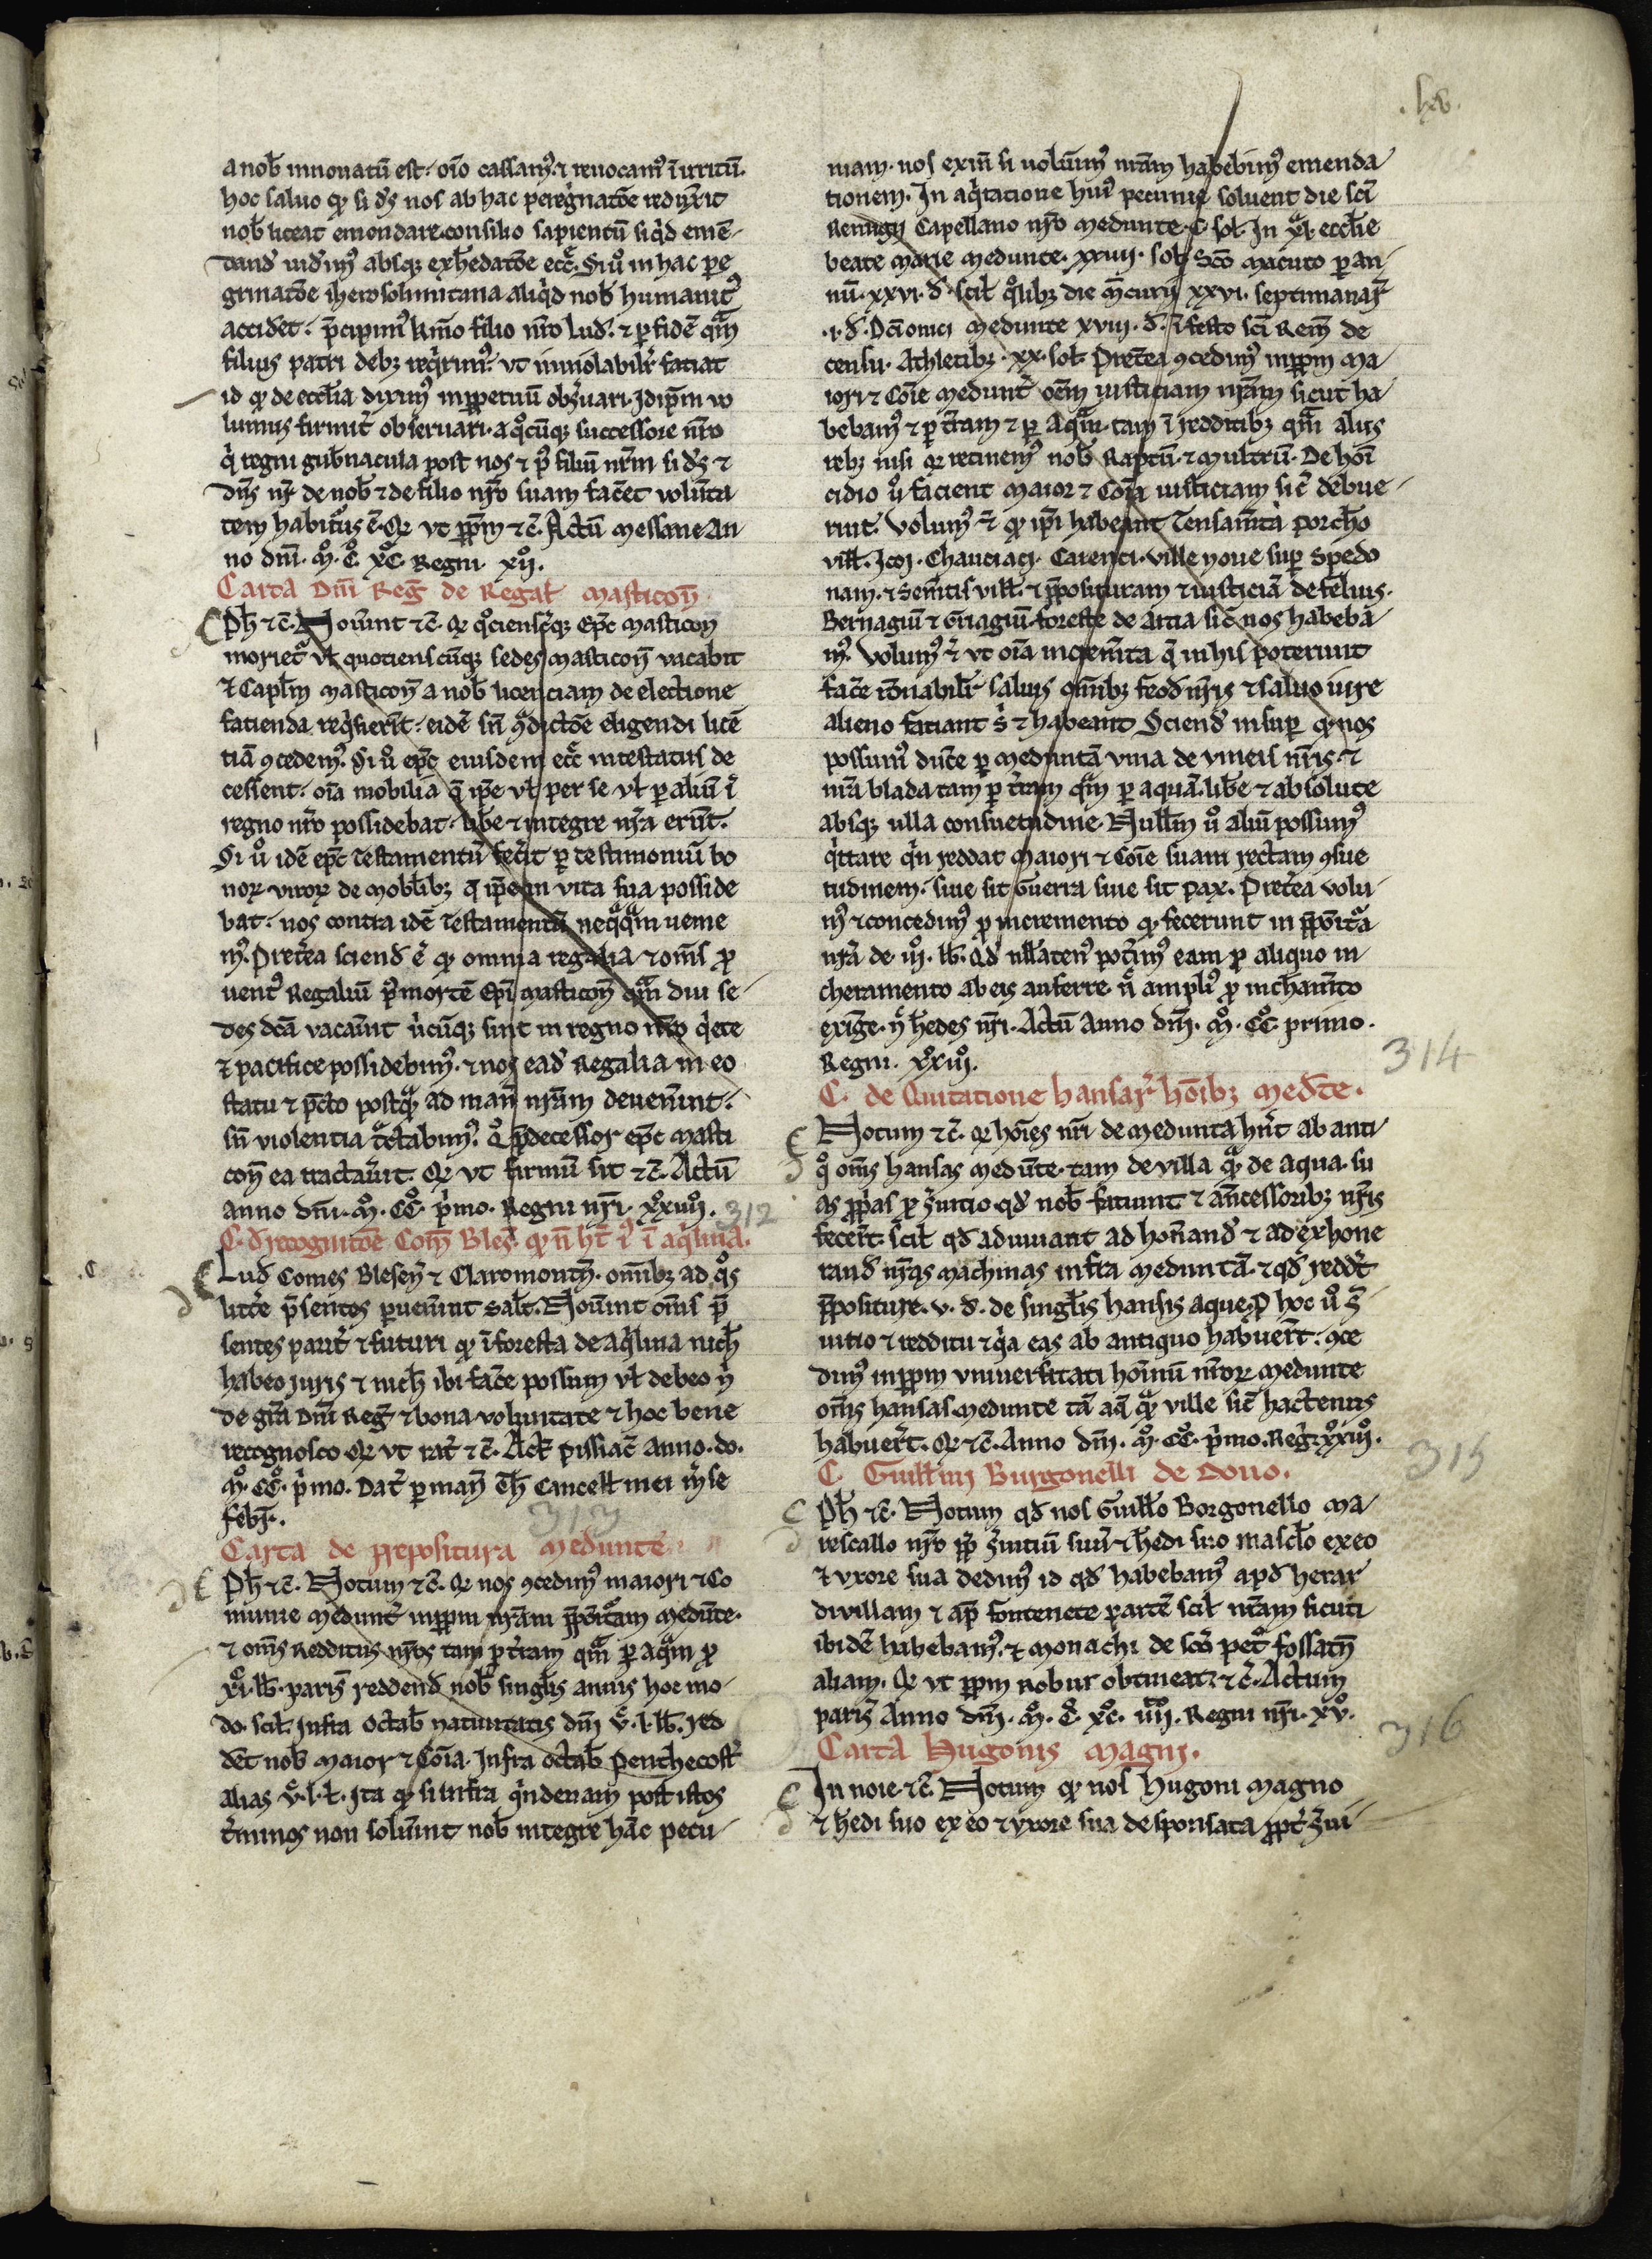 .lxv.
a nob̄ innouatū est. oīo cassamꝰ ⁊ reuocamꝰ ī irritū.
hoc saluo qͥ si dꝫ nos ab hac peregͥnatōe reduxerit
nob̄ liceat emendare consilio sapientū si qͥd emē-
dand̄ uid̄imꝰ absqꝫ exhedatōe eccͣ. Si uͦ in hac pe
grinatōe iherosolimitana aliqͥd nob̄ humanitꝰ
accid̄et. p̄cipimꝰ kͣmo filio nr̄o Lud. ⁊ p̱ fidē qͣm
filius patri debꝫ reqͥrimꝰ. vt inuiolabilit̄ faciat
id qͥ de eccl̄ia diximꝰ inp̱petuū obs̄uari. Idip̄m vo
lumus firmit̄ obseruari. a qͦcūqꝫ successore nr̄o
qͥ regni gub̄nacula post nos ⁊ pꝰ filiū nr̄m si dꝫ ⁊
dn̄s nr̄ de nob̄ ⁊ de filio nr̄o suam facēt volūta
tem habiturꝰ ē. Qd̄ vt p̱p̄m ⁊ c̄. Actū messane An-
no dn̄i. mͦ. cͦ. xͦc. Regni. xij.
Carta Dn̄i Reḡ de Regal̄ masticon̄
Ph̄ ⁊ c̄. Nouīnt ⁊ c̄. Qd̄ qͦciensc̄qꝫ ep̄c masticon̄
moriet᷑ vl̄ quotienscūqꝫ sedes masticon̄ vacabit
⁊ Capl̄m masticon̄ a nob̄ licenciam de electione
facienda reqͥsierit̄. eidē sn̄ ꝯͣdictōe eligendi licē
tiā ꝯcedemꝰ. Si uͦ ep̄c eiusdem eccͣ intestatus de
cesserit. oīa mobilia q̄ ip̄e vl̄ per se vl̄ p̱ aliū ī
regno nr̄o possidebat. lib̄e ⁊ integre nr̄a erūt.
Si uͦ idē ep̄c testamentū fec̄it p̱ testimoniū bo
noꝝ viroꝝ de mobilibꝫ q̄ ip̄e in vita sua posside
bat. nos contra idē testamentū neqͣqͣm venie
mꝰ. Preterea sciend̄ ē qͥ omnia regalia ⁊ om̄s ꝓ
uentꝰ Regaliū pꝰ mortē Ep̄i masticon̄ qͣm diu se-
des dc̄a vacau̅nt uͥcūqꝫ sint in regno nr̄o qͥete
⁊ pacifice possidebimꝰ. ⁊ nos ead̄ Regalia in eo
statu ⁊ p̄cto postqͣ ad man̄ nr̄am deuen̄int.
sn̄ violentia tͣctabimꝰ. Qͦ p̄decessor ep̄c masti
con̄ ea tractau̅it. Qd̄ vt firmū sit ⁊ c̄. Actū
anno dn̄i. mͦ. ccͦ. pͥmo. Regni nr̄i. xxiijͦ. 312
C. d̄ recognitōe Com̄ Bles̄. qͥ n̄ ht̄ iͥ ī aqͥlina.
Lud̄ Comes Blesen̄ ⁊ Claromontꝫ. omībꝫ ad qͦs
litt̄e p̄sentes p̱uen̄int sal̄t. Nouīnt om̄s p̄
sentes parit̄ ⁊ futuri qͥ ī foresta de aqͥlina nich̄
habeo juris ⁊ nich̄ ibi fac̄e possum vl̄ debeo n̄
de gr̄a Dn̄i Reḡ ⁊ bona voluntate ⁊ hoc bene
recognosco Qd̄ vt rat̄ ⁊ c̄. Act̄ pissiac̄ anno. do.
mͦ. ccͦ. pͥmo. Dat̄ p̱ man̄ Th̄ Cancell̄ mei m̄se
febr̄.
313
Carta de prepositura medunte
Ph̄ ⁊ c̄. Notum ⁊ c̄. Qd̄ nos ꝯcedimꝰ maiori ⁊ Co
munie medunt̄ inp̱p̄m nr̄am p̄poitͣam medūte.
⁊ om̄s Redditus nr̄os tam p̱ t̄ram qͣm p̱ aqͣm ꝓ
xi. lb̄. paris̄ reddend̄ nob̄ singl̄is annis hoc mo-
do. scil̄. Infra octab̄ natiuitatis dn̄i vͨ. l. lb̄. red
dēt nob̄ maior ⁊ Coīa. Infra octab̄ penthecost̄
alias vͨ. l. l̄. Ita qͥ si infra qͥndenam post istos
t̄minos non solu̅int nob̄ integre hāc pecu-
niam. nos exin̄ si voluīmꝰ nr̄am habebimꝰ emenda
tionem. In aqͥtacione huiꝰ pecunie soluent die sc̄i
Remigij Capellano nr̄o medunte. C. sol̄. In xͣl. eccl̄ie
beate marie medunte. xxiiij. sol̄. Sc̄o macuto p̱ an-
nū. xxvi. d̄. scil̄ qͦlibꝫ die m̄curij xxvi. septimanaꝝ
.i. d̄. Dc̄ionici medunte xviij. d̄. ī festo sc̄i Rem̄ de
censu. Athletibꝫ. xx. sol̄. Pret̄ea ꝯcedimꝰ inp̱p̄m ma-
iori ⁊ Coīe medunt̄ oēm iusticiam nr̄am sicut ha-
bebamꝰ ⁊ p̱ t̄ram ⁊ p̱ aquā. tam ī redditibꝫ qͣm aliis
rebꝫ nisi qd̄ retinemꝰ nob̄ Raptū. ⁊ multrū. De hoī
cidio uͦ facient maior ⁊ Coīa iusticiam sic̄ debue-
rint. Volumꝰ ⁊̄ qͥ ip̄i habeant Tensam̄ta porcheͦ
vill̄. Icoi. Chauciaci. Carenci. ville noue sup̱ Spedo
nam. ⁊ Sem̄tis vill̄. ⁊ p̄posituram ⁊ iusticiā de feluis.
Bernagiū ⁊ Gͥnagiū foreste de Artia sic̄ nos habeba
mꝰ. Volumꝰ ⁊̄ vt oīa increm̄ta q̄ in his poterunt
fac̄e rōnabilit̄ saluis omībꝫ feod̄ nr̄is ⁊ saluo iure
alieno faciant s̄ ⁊ habeant. Sciend̄ insup̱ qͥ nos
possumꝰ ducͤ p̱ meduntā vina de vineis nr̄is. ⁊
nr̄a blada tam p̱ t̄ram qͣm p̱ aquā. lib̄e ⁊ absolute
absqꝫ ulla consuetudine. Null̄m uͦ aliū possumꝰ
qͥttare qͥn reddat maiori ⁊ Coīe suam rectam ꝯsue
tudinem. siue sit Guerra siue sit pax. Pret̄ea volu-
mꝰ ⁊ concedimꝰ ꝓ incremento qͥ fecerunt in p̄poitͣa
nr̄a de iijͦ. lb̄. Qd̄ nll̄atenꝰ pot̄imꝰ eam ꝓ aliquo in
cheramento ab eis auferre. n̄ͨ ampliꝰ ꝓ inch̄am̄to
exiḡe. nͨ hedes nr̄i. Actū Anno dn̄i. mͦ. ccͦ. primo.
Regni. xxiijͦ.
314
C. de Quitatione hansaꝝ hoībꝫ med̄te.
Notum ⁊ c̄. Qd̄ hoīes nr̄i de medunta hn̄t ab anti
qͦ om̄s hansas medūte. tam de villa qͣ de aqua. su
as p̱pͥas ꝓ s̄uitio. qd̄ nob̄ faciunt ⁊ an̄cessoribꝫ nr̄is
fecer̄t. scil̄ qd̄ adiuuant ad honand̄ ⁊ ad exhone
rand̄ nr̄as machinas infra meduntā. ⁊ qd̄ reddt̄
p̄positure. v. d̄. de singl̄is hansis aque. ꝓ hoc uͦ s̄
uitio ⁊ redditu ⁊ qͥa eas ab antiquo habuer̄t. ꝯce
dimꝰ inp̱p̄m vniuersitati hoīnū nr̄oꝝ medunte
om̄s hansas medunte tā aq̄ qͣ ville sic̄ hactenus
habuer̄t. Qd̄ ⁊ c̄. Anno dn̄i. mͦ. ccͦ. pͥmo. Reḡ. xxiijͦ.
315
C. Guill̄mi Burgonelli de Dono.
Ph̄ ⁊ c̄. Notum qd̄ nos Guill̄o Borgonello ma-
rescallo nr̄o p̱p̄ s̄uitiū suū ⁊ h̄edi suo mascl̄o ex eo
⁊ vxore sua dedimꝰ id qd̄ habebamꝰ apd̄ herar
diuillam ⁊ ap̄ fontenete partē scil̄ nr̄am sicuti
ibidē habebamꝰ. ⁊ monachi de sc̄o petͦ fossatꝫ
aliam. Qd̄ vt p̱p̄m robur obtineat. ⁊ c̄. Actum
paris̄ Anno dn̄i. mͦ. cͦ. xͦc. iiijͦ. Regni nr̄i. xvͦ.
316
Carta Hugonis magni.
In noīe ⁊ c̄. Notum qͥ nos Hugoni magno
⁊ h̄edi suo ex eo ⁊ vxore sua desponsata p̱pt̄ s̄ui-